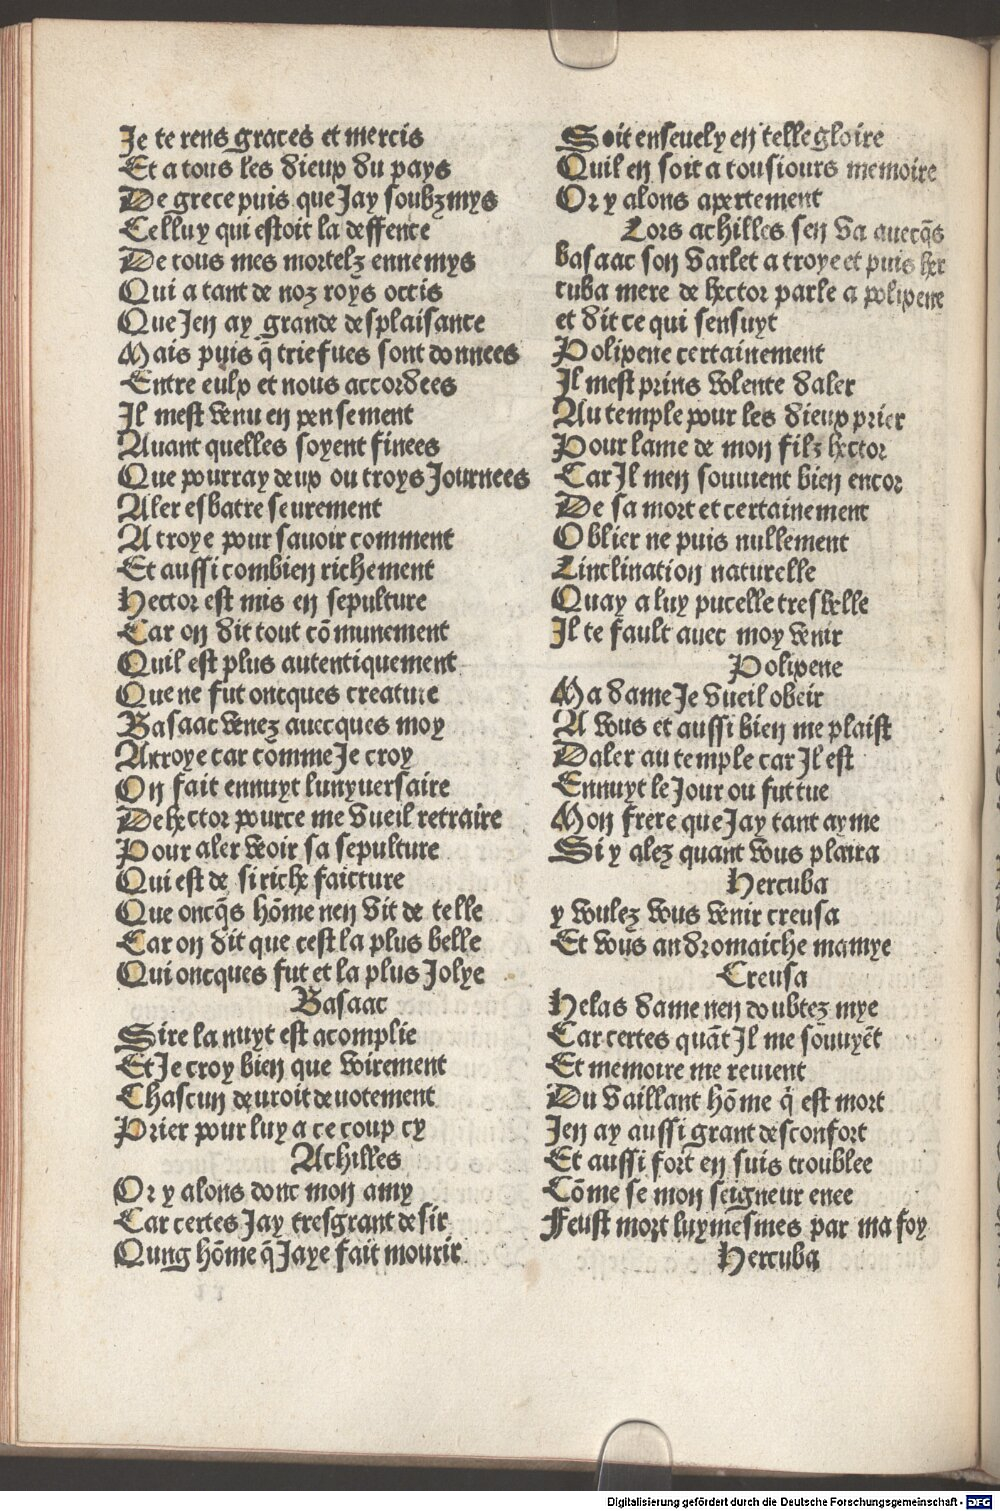 Je te rens graces et mercis
Et a tous les dieux du pays
De grece puis que Jay soubzmys
Celluy qui estoit la deffence
De tous mes mortelz ennemys
Qui a tant de noz roys occis
Que Jen ay grande desplaisance
Mais puis q̄ triefues sont donnees
Entre eulx et nous accordees
Il mest venu en pensement
Auant quelles soyent finees
Que pourray deux ou troys Journees
Aler esbatre seurement
A troye pour sauoir comment
Et aussi combien richement
Hector est mis en sepulture
Car on dit tout cōmunement
Quil est plus autentiquement
Que ne fut oncques creature
Basaac venez auecques moy
A troye car cōme Je croy
On fait ennuyt lunyuersaire
De hector pource me vueil retraire
Pour aler veoir sa sepulture
Qui est de si riche faicture
Que oncq̄s hōme nen vit de telle
Car on dit que cest la plus belle
Qui oncques fut et la plus Jolye
Basaac
Sire la nuyt est acomplie
Et Je croy bien que voirement
Chascun deuroit deuotement
Prier pour luy a ce coup cy
Achilles
Or y alons donc mon amy
Car certes Jay tresgrant desir
Qung hōme q̄ Jaye fait mourir
Soit enseuely en telle gloire
Quil en soit a tousiours memoire
Or y alons apertement
Lors achilles sen va auecq̄s
basaac son varlet a troye et puis her
cuba mere de hector parle a polixene
et dit ce qui sensuyt
Polixene certainement
Il mest prins volente daler
Au temple pour les dieux prier
Pour lame de mon filz hector
Car Il men souuient bien encor
De sa mort et certainement
Oblier ne puis nullement
Linclination naturelle
Quay a luy pucelle tresbelle
Il te fault auec moy venir
Polixene
Ma dame Je vueil obeir
A vous et aussi bien me plaist
Daler au temple car Il est
Ennuyt le Jour ou fut tue
Mon frere que Jay tant ayme
Si y alez quant vous plaira
Hercuba
y voulez vous venir creusa
Et vous andromaiche mamye
Creusa
Helas dame nen doubtez mye
Car certes quāt Il me souuyēt
Et memoire me reuient
Du vaillant hōme q̄ est mort
Jen ay aussi grant desconfort
Et aussi fort en suis troublee
Cōme se mon seigneur enee
Feust mort luymesmes par ma foy
Hercuba
Digitalisierung gefördert durch die Deutsche Forschungsgemeinschaft - DFG